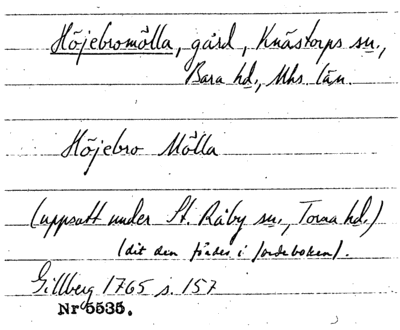 Höjebromölla, gård, Knästorps sn.,
Bara hd., Mhs län.
Höjebro Mölla
(uppsatt under St. Råby sn., Torna hd.)
(dit den föres i jordeboken).
Gillberg 1765 s. 157
Nr 5535.